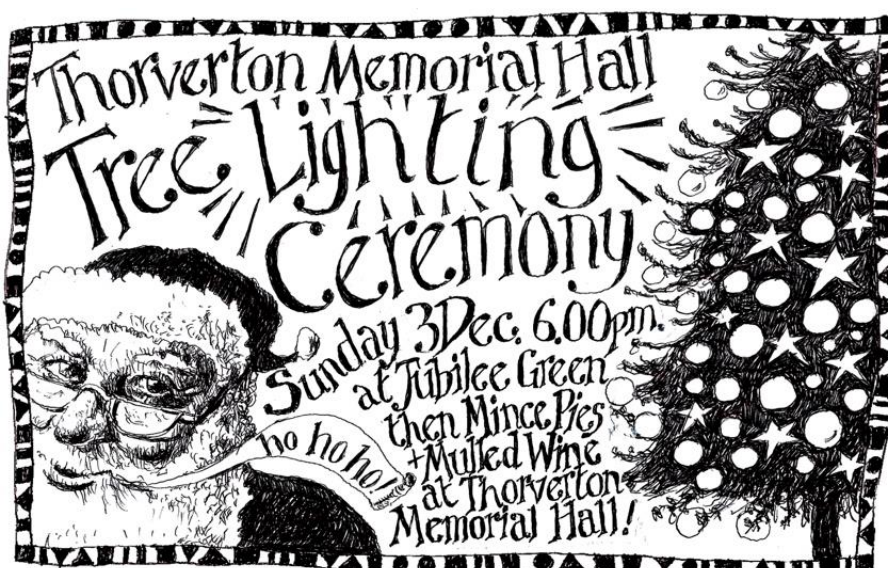 Thorverton Memorial Hall
Tree Lighting
Ceremony
Sunday 3Dec. 6.00pm.
at Jubilee Green
then Mince Pies
+Mulled Wine
at Thorverton
Memorial Hall!
ho ho ho!